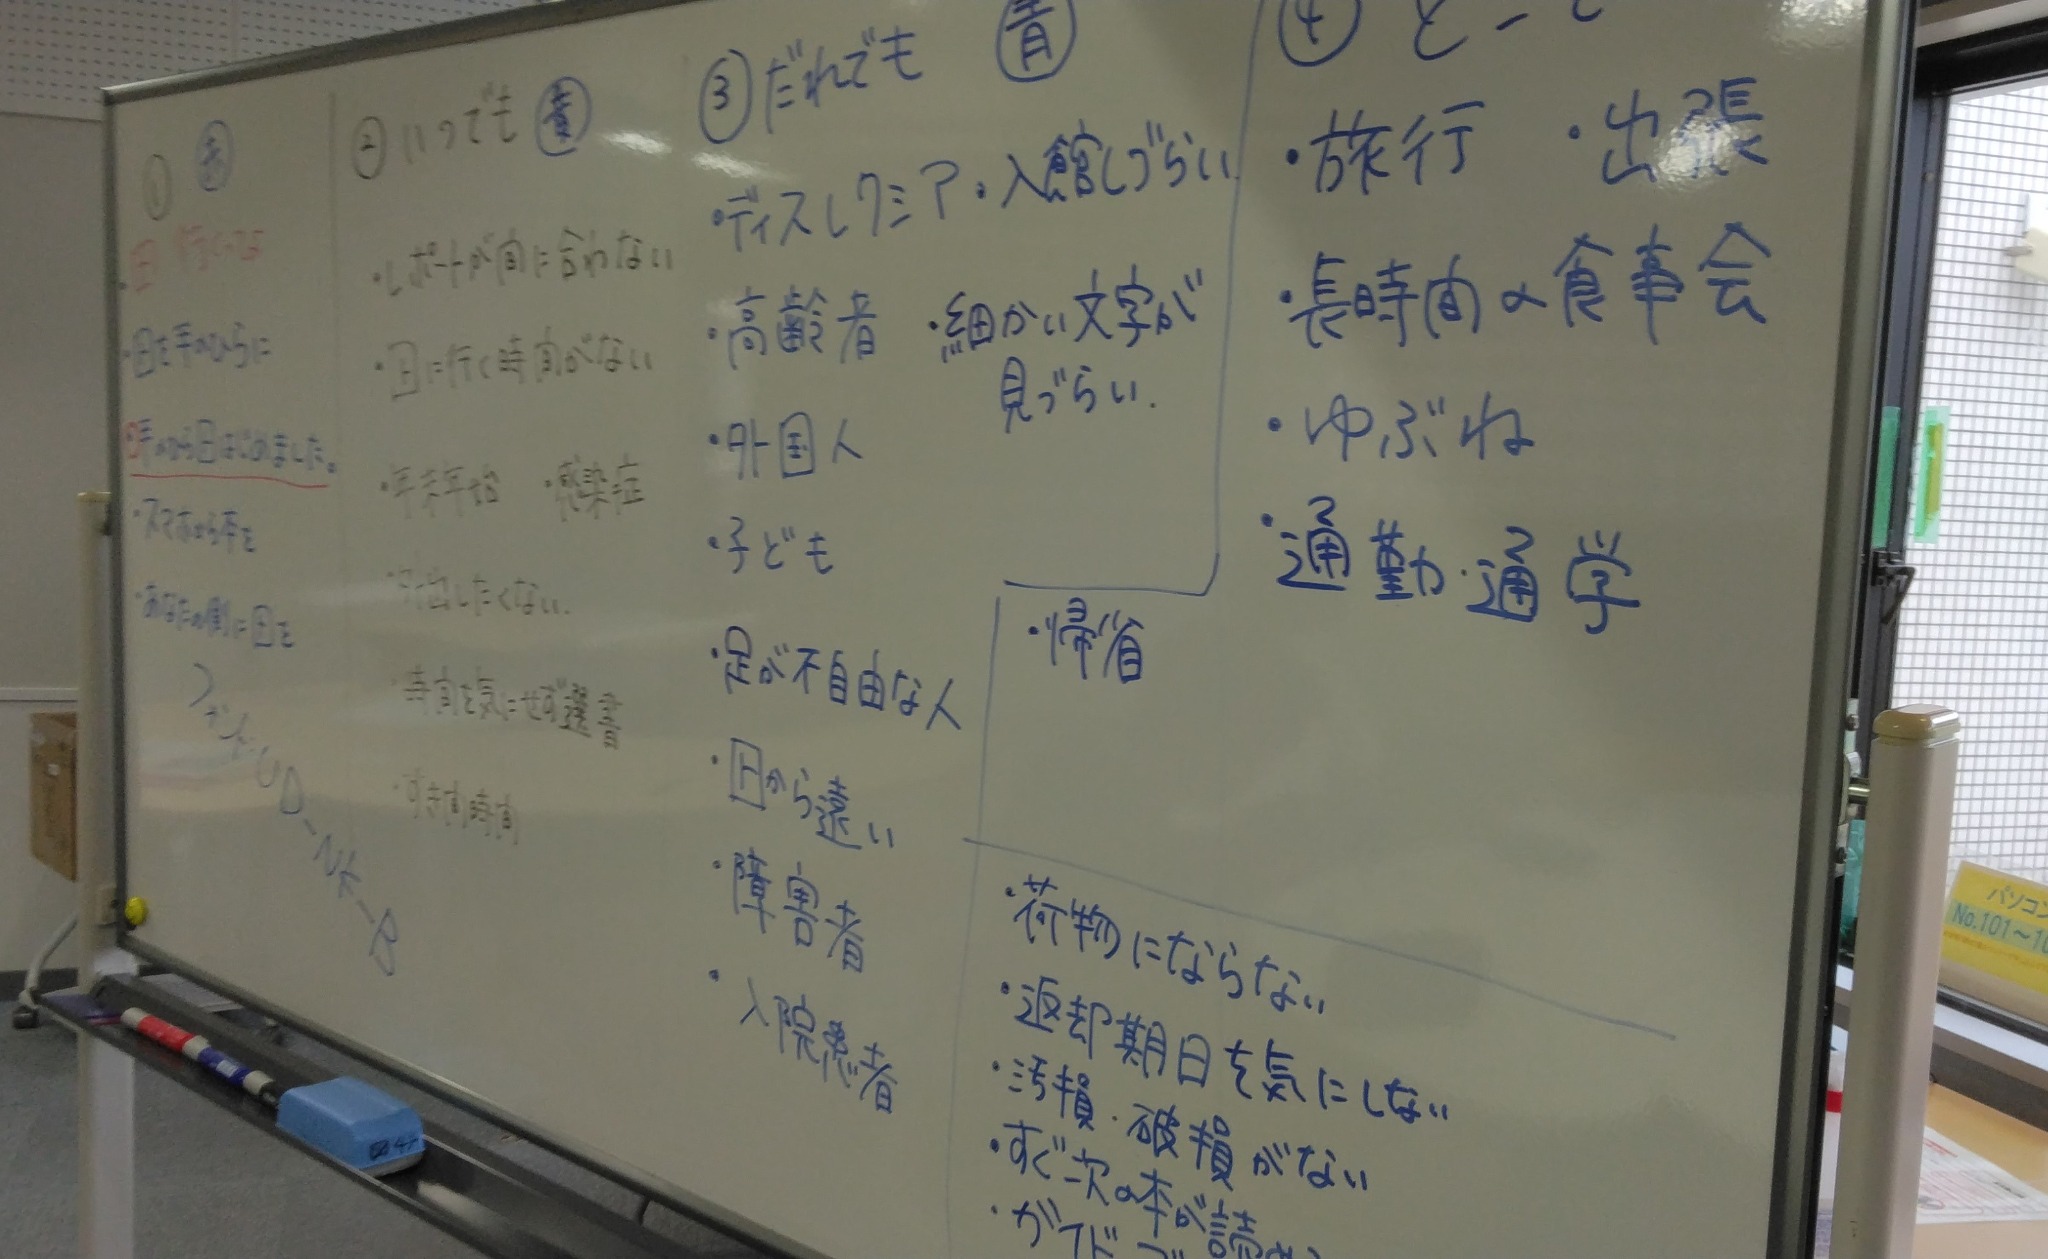 ①
行くな
を手のひらに
はじめました。
スマホから本を
あなたの側に
フォント:UD-NK-B
② いつでも 青
・レポートが間に合わない
に行く時間がない
・年末年始 ・感染症
・外出したくない.
・時間を気にせず選書
・すき間時間
③ だれでも 青
・ディスレクシア ・入館しづらい
・高齢者 ・細かい文字が
見づらい.
・外国人
・子ども
・足が不自由な人
から遠い
・障害者
・入院患者
④
・旅行 ・出張
・長時間の食事会
・ゆぶね
・通勤・通学
・帰省
・荷物にならない
・返却期日を気にしない
・汚損・破損がない
・すぐ次の本が読
パソコン
No.101～10